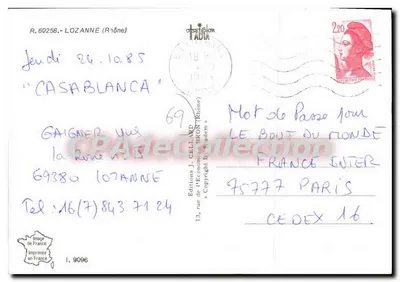 R. 60258.- LOZANNE (Rhône)
Jeudi 24.10.85
"CASABLANCA"
69
GAIGNER
la Rome n° 5
69380 LOZANNE
Tel: 16 (7) 843 71 24
Image
de France
Imprimée
en France
I. 9096
Editions J. CELLARD
BRON (Rhône)
2,20
Mot de Passe pour
LE BOUT DU MONDE
FRANCE INTER
75777 PARIS
CEDEX 16
CPArteCollection